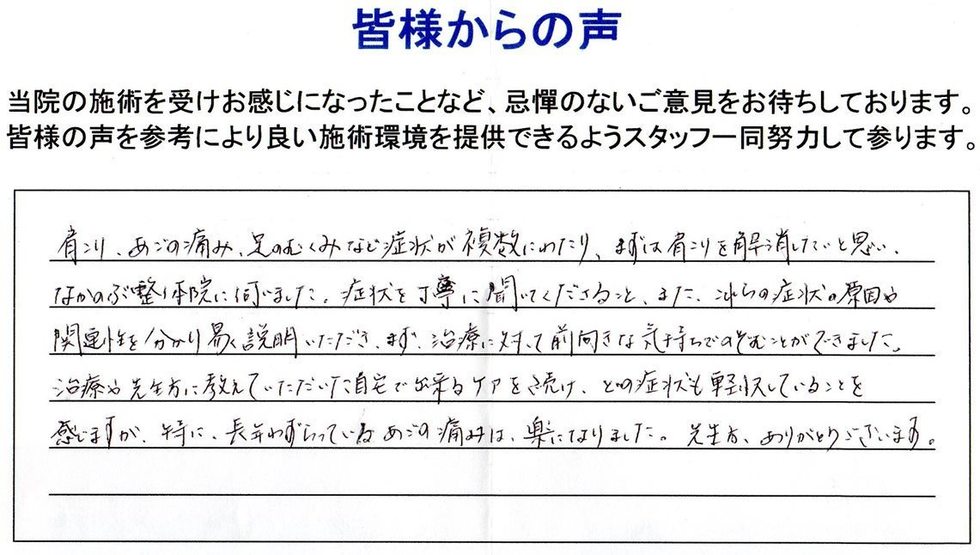 皆様からの声
当院の施術を受けお感じになったことなど、忌憚のないご意見をお待ちしております。
皆様の声を参考により良い施術環境を提供できるようスタッフ一同努力して参ります。
肩こり、あごの痛み、足のむくみなど症状が複数にわたり、まずは肩こりを解消したいと思い、
なかのぶ整体院に伺いました。症状を丁寧に聞いてくださること、また、これらの症状の原因や
関連性を分かり易く説明いただき、まず、治療に対して前向きな気持ちでのぞむことができました。
治療や先生方に教えていただいた自宅で出来るケアを続け、どの症状も軽状していることを
感じますが、特に、長年わずらっているあごの痛みは、楽になりました。先生方、ありがとうございます。